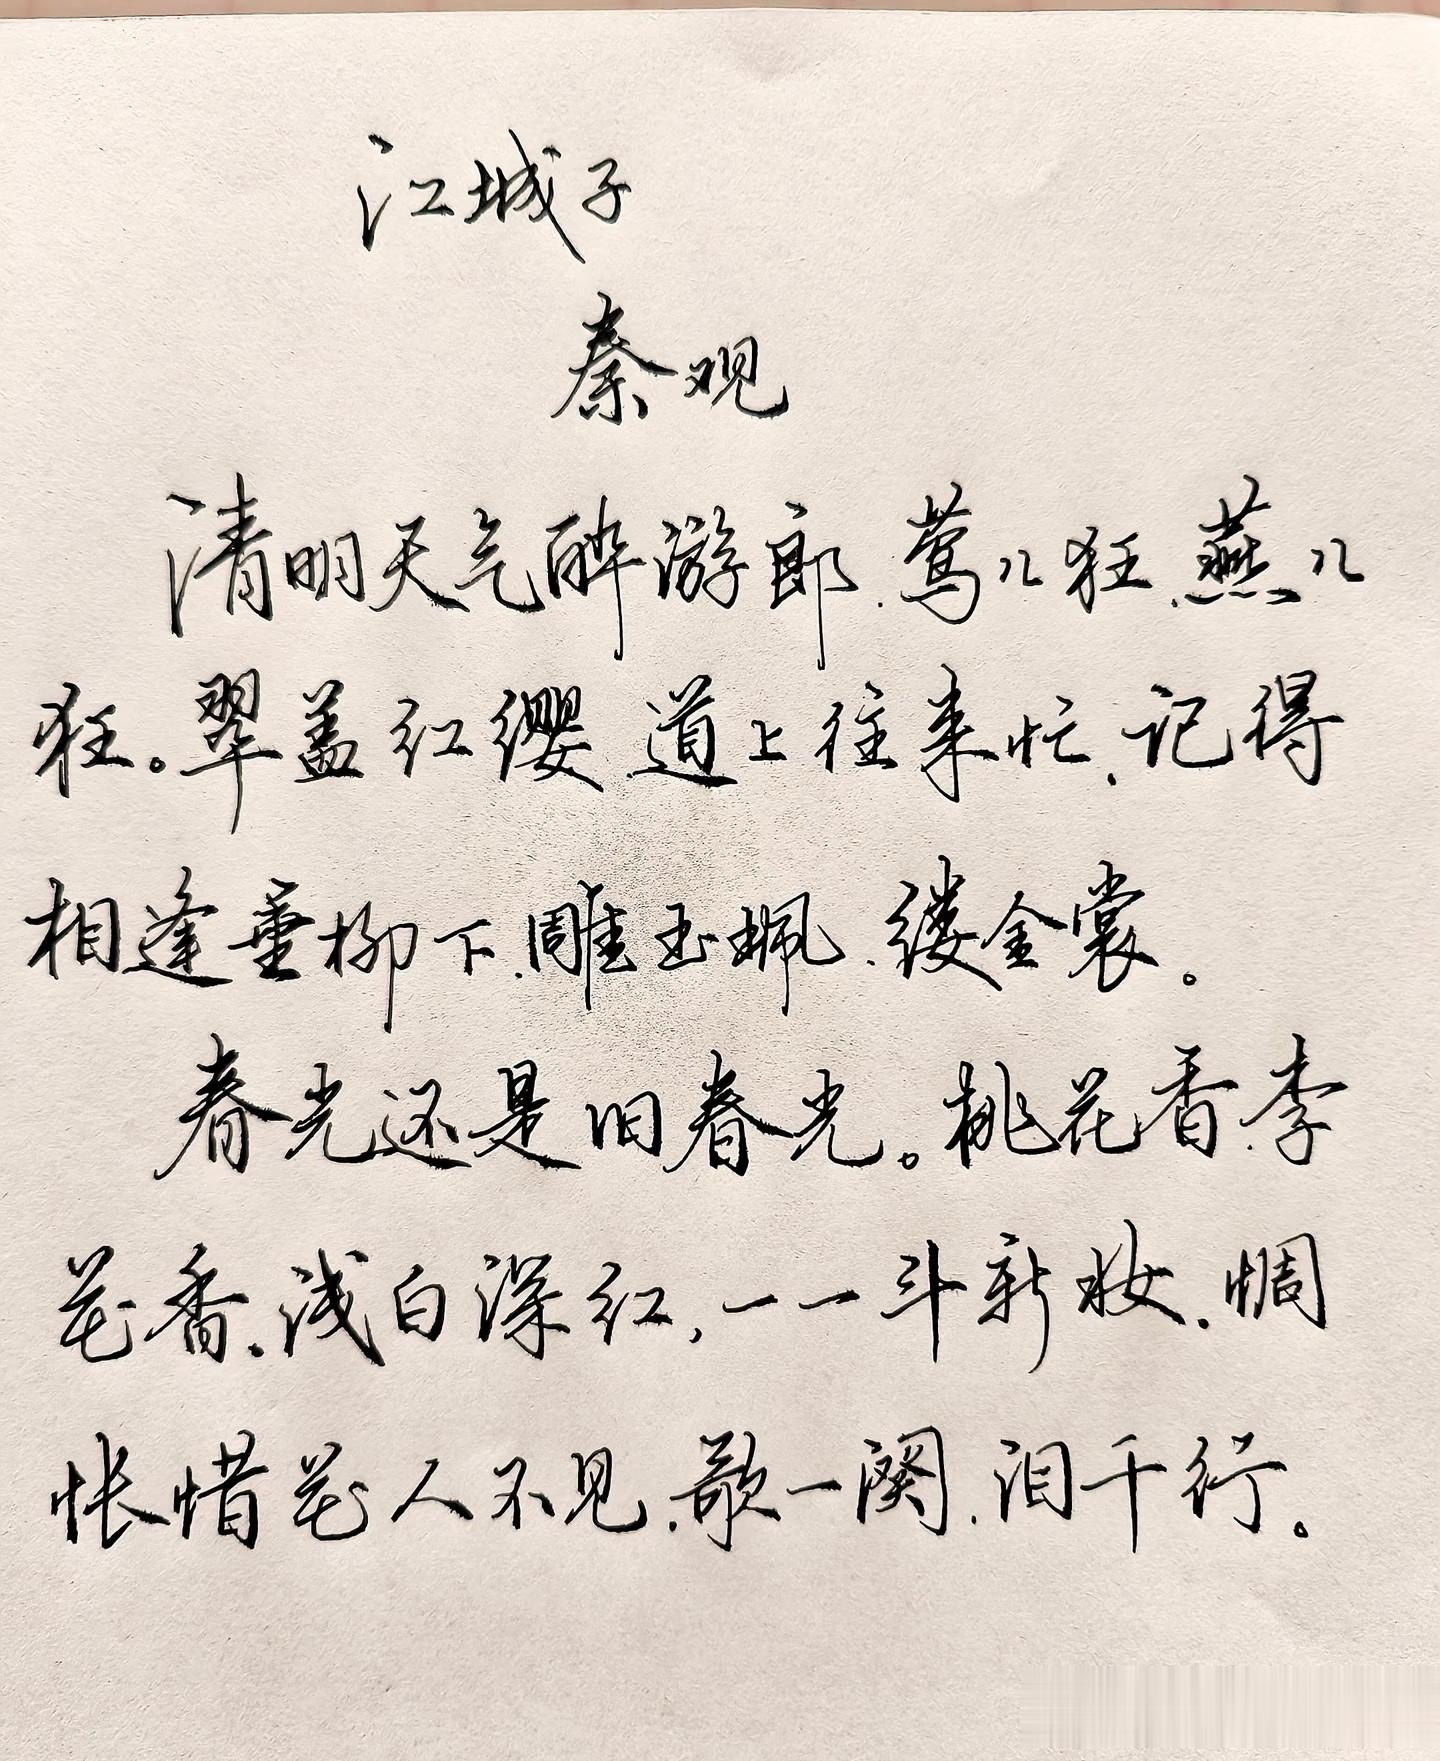 江城子
秦观
清明天气醉游郎.莺儿狂.燕儿
狂。翠盖红缨.道上往来忙.记得
相逢垂柳下.雕玉珮.缕金裳。
春光还是旧春光。桃花香.李
花香.浅白深红,一一斗新妆.惆
怅惜花人不见.歌一阕.泪千行。